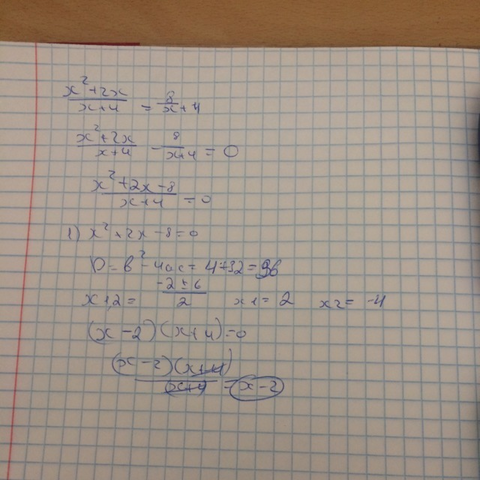 x²+2x/x+4 = 8/x+4
x²+2x/x+4 - 8/x+4 = 0
x²+2x-8/x+4 = 0
1) x²+2x-8=0
D=b²-4ac=4+32=36
x1,2= -2±6/2 x1=2 x2=-4
(x-2)(x+4)=0
(x-2)(x+4)/x+4 = x-2